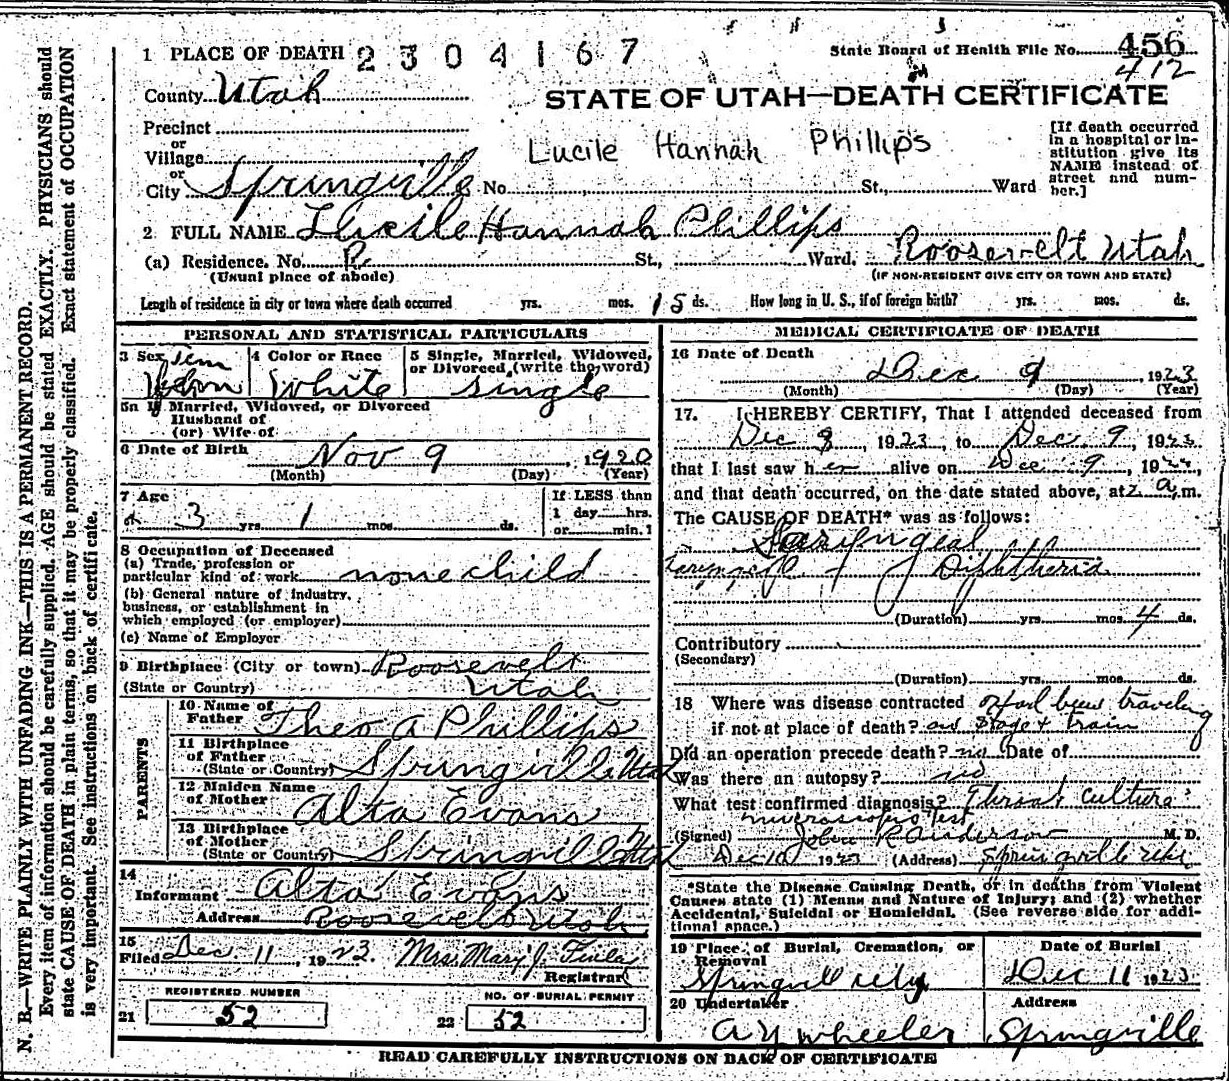 1 PLACE OF DEATH 2304167
State Board of Health File No. 456
412
County Utah
STATE OF UTAH—DEATH CERTIFICATE
Precinct
or
Village
Lucile Hannah Phillips
[If death occurred in a hospital or institution give its NAME instead of street and number.]
or
City Springville No. St., Ward
2 FULL NAME Lucile Hannah Phillips
(a) Residence. No. R St., Ward. Roosevelt Utah
(Usual place of abode) (IF NON-RESIDENT GIVE CITY OR TOWN AND STATE)
Length of residence in city or town where death occurred yrs. mos. 15 ds. How long in U. S., if of foreign birth? yrs. mos. ds.
PERSONAL AND STATISTICAL PARTICULARS
3 Sex Fem 4 Color or Race White 5 Single, Married, Widowed, or Divorced, (write the word) single
5a If Married, Widowed, or Divorced
Husband of
(or) Wife of
6 Date of Birth Nov 9, 1920
(Month) (Day) (Year)
7 Age 3 yrs 1 mos. ds. If LESS than 1 day hrs. or min.
8 Occupation of Deceased
(a) Trade, profession or
particular kind of work none child
(b) General nature of industry,
business, or establishment in
which employed (or employer)
(c) Name of Employer
9 Birthplace (City or town) Roosevelt
(State or Country) Utah
PARENTS
10 Name of Father Theo A Phillips
11 Birthplace of Father
(State or Country) Springville Utah
12 Maiden Name of Mother Alta Evans
13 Birthplace of Mother
(State or Country) Springville Utah
14
Informant Alta Evans
Address Roosevelt Utah
15
Filed Dec. 11, 1923. Mrs. Mary J.
Registrar
REGISTERED NUMBER
21 52
NO. OF BURIAL PERMIT
22 52
MEDICAL CERTIFICATE OF DEATH
16 Date of Death
Dec 9, 1923
(Month) (Day) (Year)
17. I HEREBY CERTIFY, That I attended deceased from
Dec 8, 1923, to Dec 9, 1923
that I last saw her alive on Dec 9, 192
and that death occurred, on the date stated above, at 2 a.m.
The CAUSE OF DEATH* was as follows:
Laryngeal
Laryngeal Diphtheria
(Duration) yrs. mos. 4 ds.
Contributory
(Secondary)
(Duration) yrs. mos. ds.
18 Where was disease contracted Had been traveling
if not at place of death? on Stage & train
Did an operation precede death? no Date of
Was there an autopsy? no
What test confirmed diagnosis? Throat culture
microscopic test
(Signed) John R Anderson M. D.
Dec 10 1923 (Address) Springville Utah
*State the Disease Causing Death, or in deaths from Violent
Causes state (1) Means and Nature of Injury; and (2) whether
Accidental, Suicidal or Homicidal. (See reverse side for additional space.)
19 Place of Burial, Cremation, or Removal
Springville City
Date of Burial
Dec 11 1923
20 Undertaker
A Y Wheeler
Address
Springville
READ CAREFULLY INSTRUCTIONS ON BACK OF CERTIFICATE
N. B.—WRITE PLAINLY WITH UNFADING INK—THIS IS A PERMANENT RECORD.
Every item of information should be carefully supplied. AGE should be stated EXACTLY. PHYSICIANS should
state CAUSE OF DEATH in plain terms, so that it may be properly classified. Exact statement of OCCUPATION
is very important. See instructions on back of certificate.